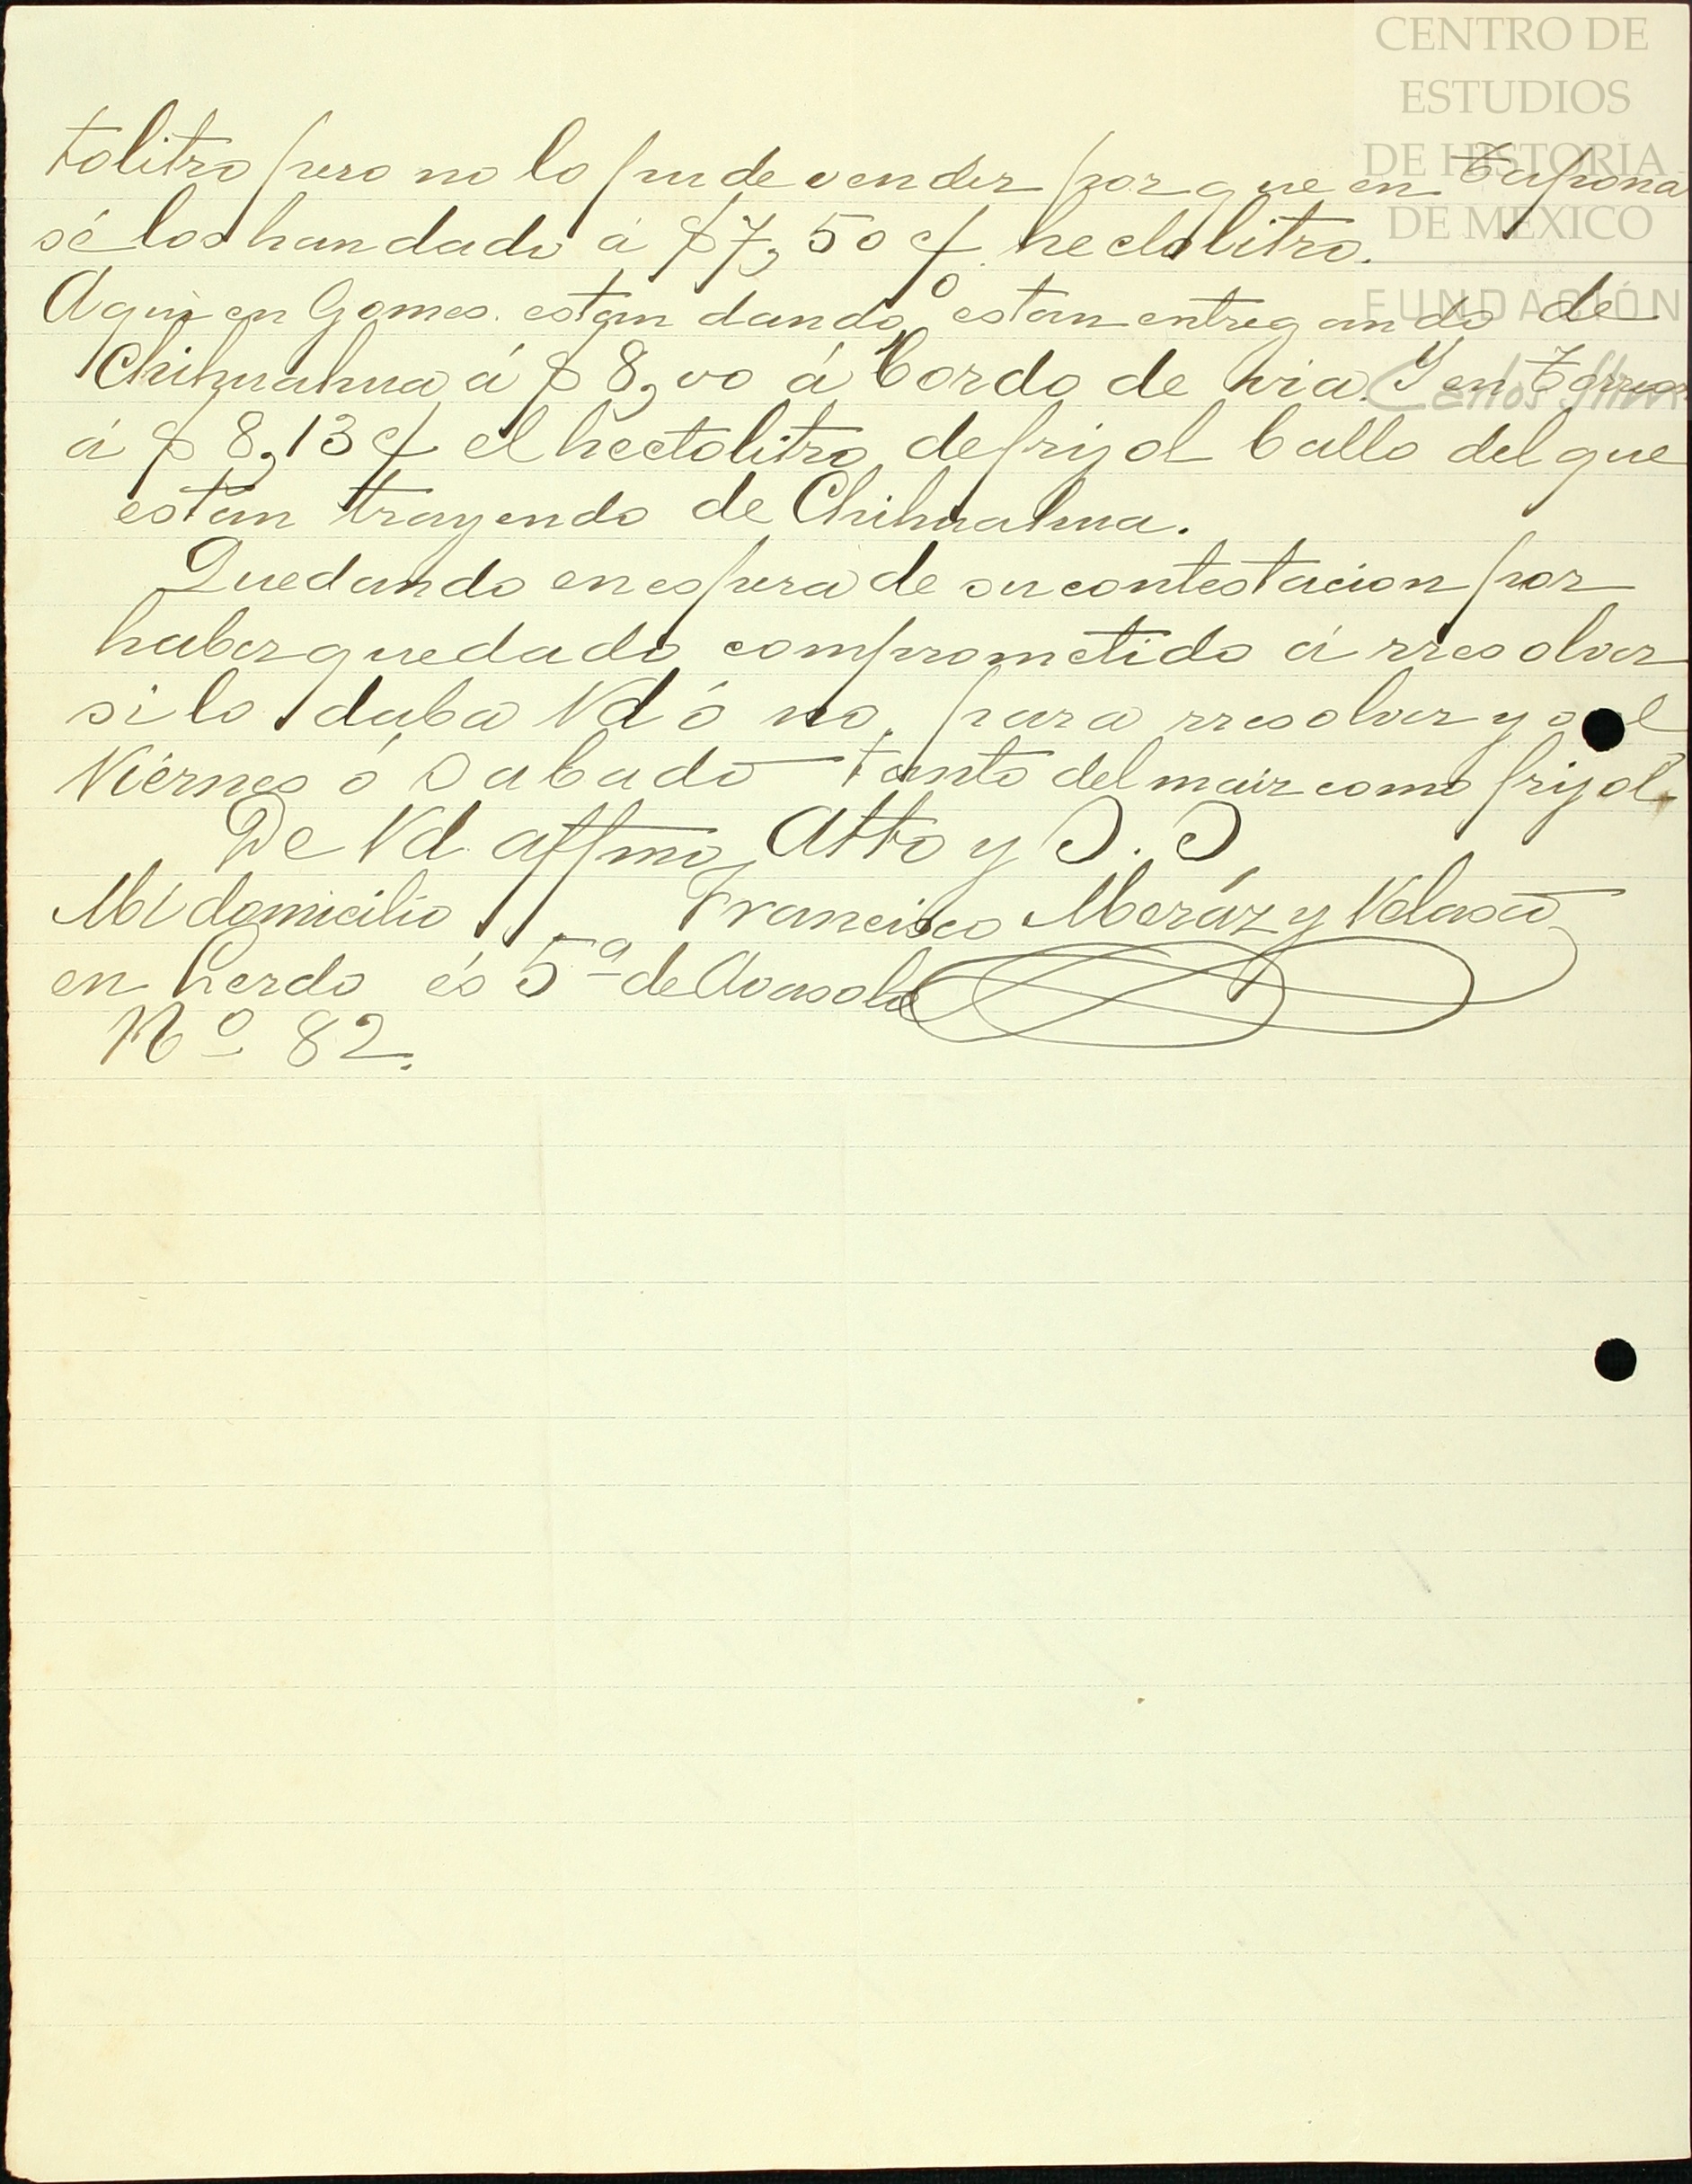 CENTRO DE
ESTUDIOS
DE HISTORIA
DE MEXICO
FUNDACIÓN
Carlos Slim
tolitro pero no lo pude vender por que en Tapona
sé los han dado á $7,50 ¢ hectolitro.
Aqui en Gomes. estan dando ó estan entregando de
Chihuahua á $8,00 á bordo de via. Y en Torreon
á $8,13 ¢ el hectolitro de frijol ballo del que
estan trayendo de Chihuahua.
Quedando en espera de su contestacion por
haber quedado comprometido á rresolver
si lo daba Vd ó no, para rresolver yo el
Viérnes ó Sabado tanto del maiz como frijol.
De Vd. affmo, Atto y S. S,
Mi domicilio Francisco Meráz y Velasco
en Lerdo és 5ª de
Nº 82.